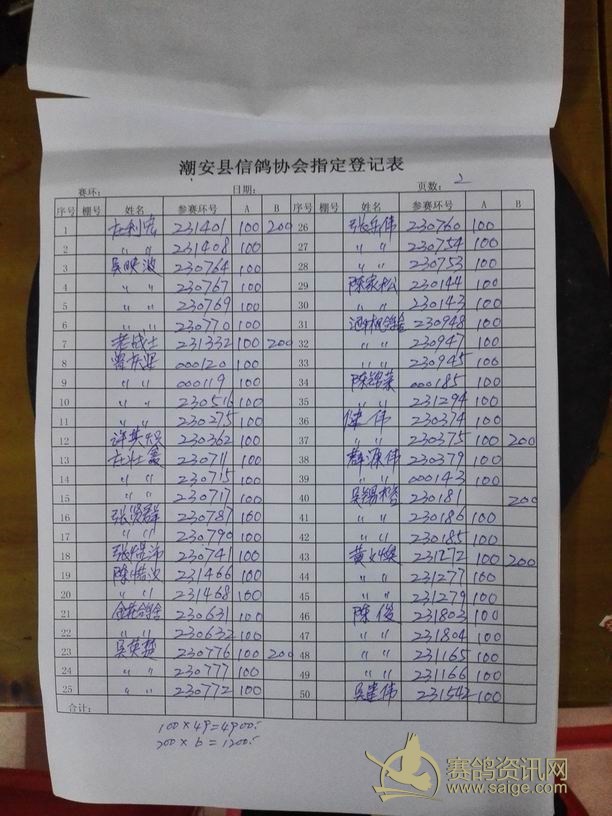 潮安县信鸽协会指定登记表
赛环： 日期： 页数：2
序号 棚号 姓名 参赛环号 A B 序号 棚号 姓名 参赛环号 A B
1 231401 100 200 26 张乐伟 230760 100
2 〃 〃 231408 100 27 〃 〃 230754 100
3 吴映波 230764 100 28 〃 〃 230753 100
4 〃 〃 230767 100 29 陈家松 230144 100
5 〃 〃 230769 100 30 〃 〃 230143 100
6 〃 〃 230770 100 31 230948 100
7 老战士 231332 100 200 32 〃 〃 230947 100
8 000120 100 33 〃 〃 230945 100
9 〃 〃 000119 100 34 000185 100
10 〃 〃 230516 100 35 〃 〃 231294 100
11 〃 〃 230275 100 36 健伟 230374 100
12 230362 100 37 〃 〃 230375 100 200
13 230711 100 38 230379 100
14 〃 〃 230715 100 39 〃 〃 000143 100
15 〃 〃 230717 100 40 230181 200
16 230787 100 41 〃 〃 230186 100
17 〃 〃 230790 100 42 〃 〃 230185 100
18 230741 100 43 231272 100 200
19 231466 100 44 〃 〃 231277 100
20 〃 〃 231468 100 45 〃 〃 231279 100
21 230631 100 46 陈俊 231803 100
22 〃 〃 230632 100 47 〃 〃 231804 100
23 230776 100 200 48 〃 〃 231165 100
24 〃 〃 230777 100 49 〃 〃 231166 100
25 〃 〃 230772 100 50 吴建伟 231542 100
合计：
100×49=4900
200×6=1200
赛鸽资讯网
www.saige.com